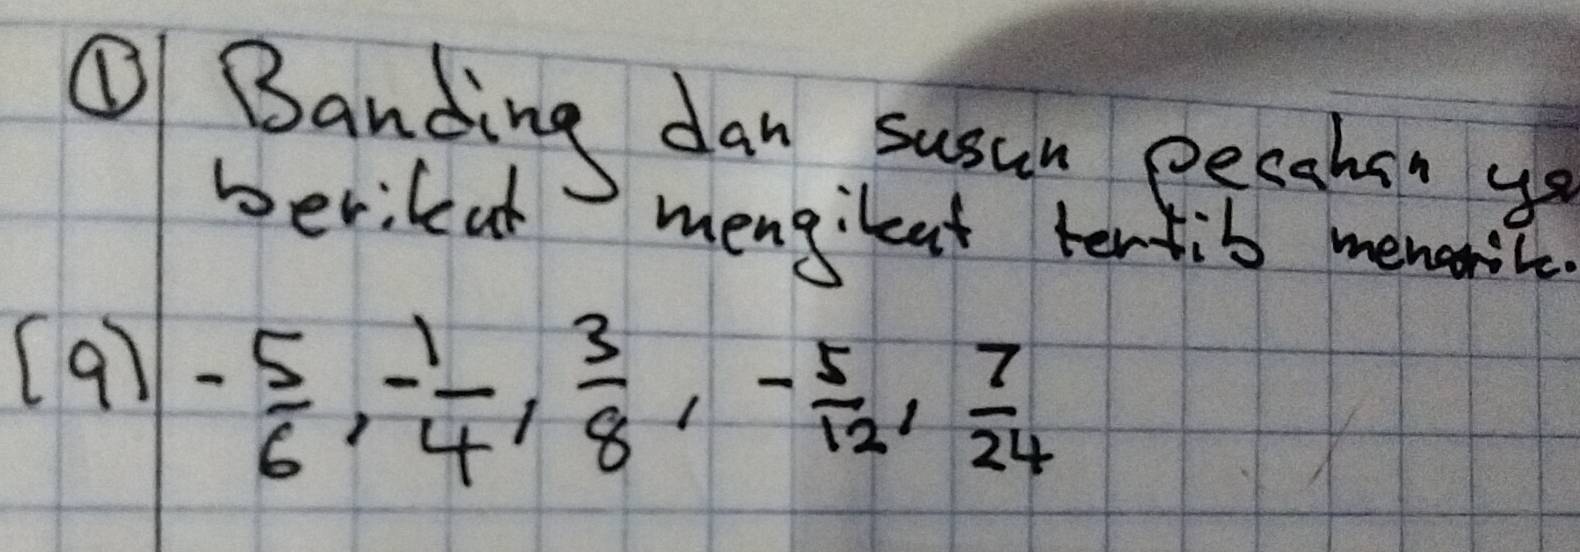 ① Banding dan susun pecahan yg
berikut mengikut tertib menaik.
(a) -5/6, -1/4, 3/8, -5/12, 7/24